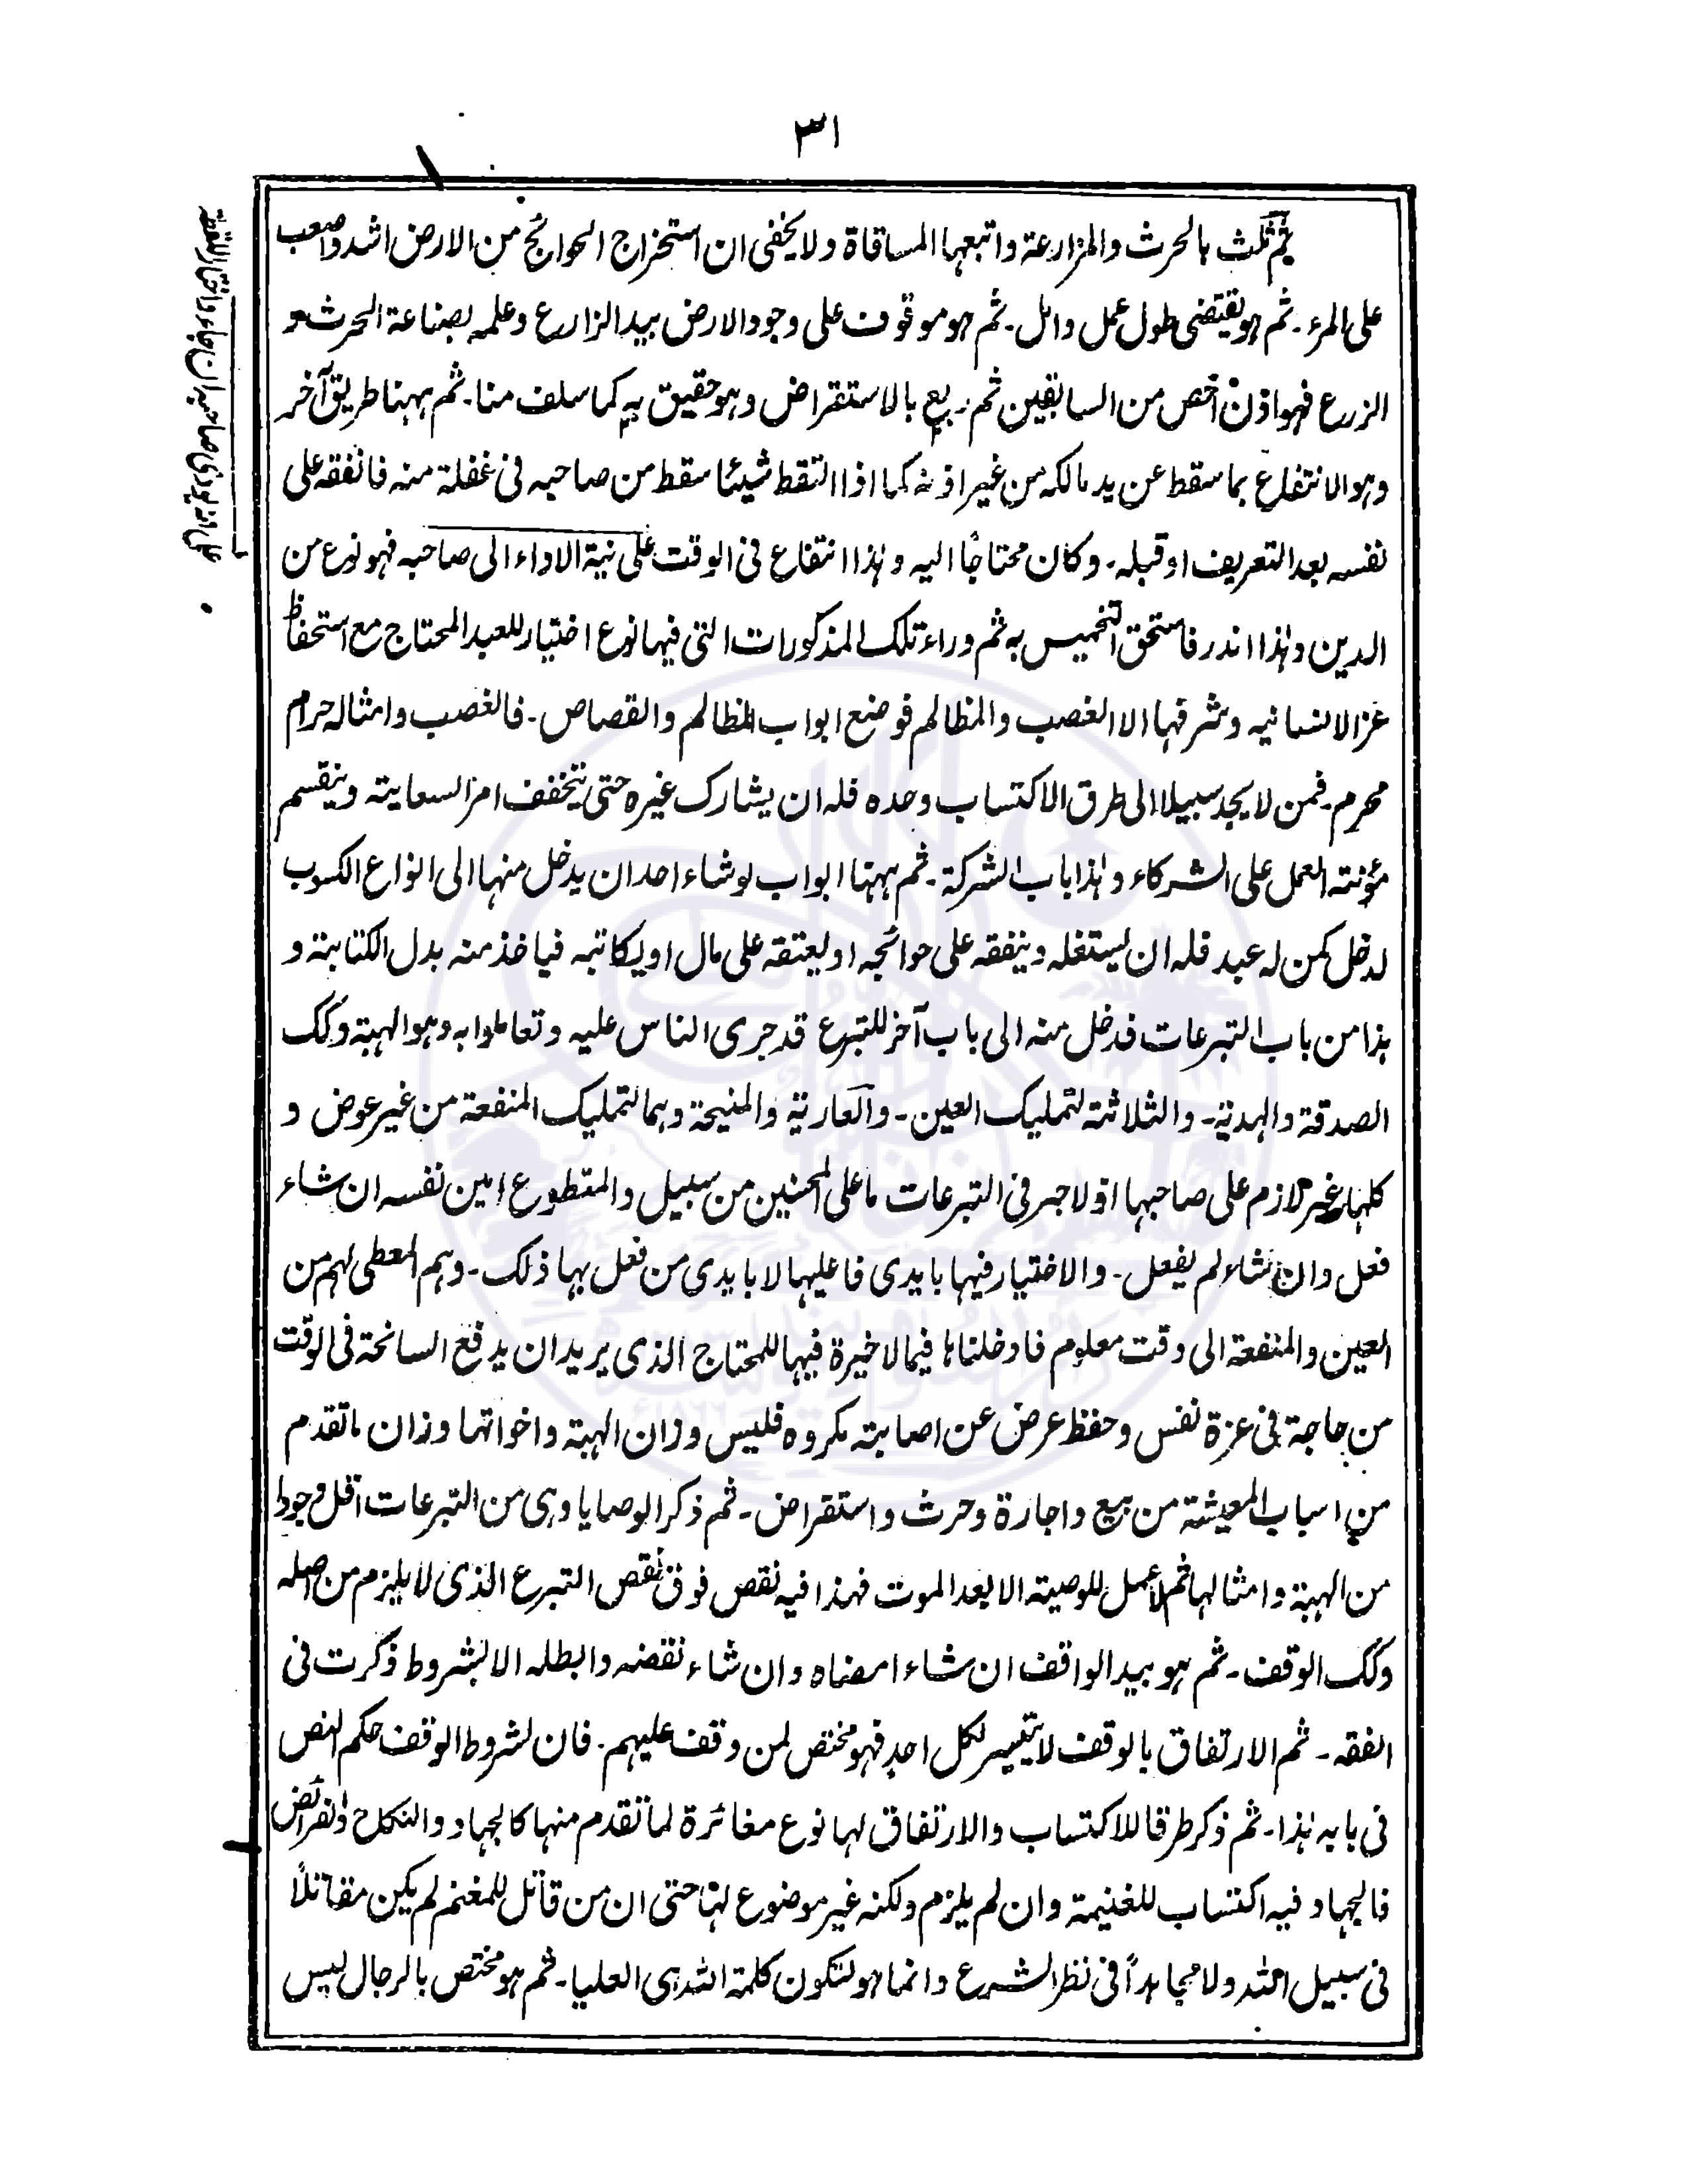 ٣١
ثم ثلث بالحرث والمزارعة واتبعها المساقاة ولا يخفى ان استخراج الحوائج من الارض اشد واصعب
على المرء ۔ ثم هو يقتضى طول عمل وامل ۔ ثم هو موقوف على وجود الارض بيد الزارع وعلمه بصناعة الحرث و
الزرع فهو اذن اخص من السابقين ثم ربع بالاستقراض وهو حقيق به كما سلف منا ۔ ثم ههنا طريق آخر
وهو الانتفاع بما سقط عن يد مالكه من غير اذنه كما اذا التقط شيئا سقط من صاحبه فى غفلة منه فانفقه على
نفسه بعد التعريف او قبله ۔ وكان محتاجًا اليه وهذا انتفاع فى الوقت على نية الاداء الى صاحبه فهو نوع من
الدين وهذا اندر فاستحق التخميس به ثم وراء تلك المذكورات التى فيها نوع اختيار للعبد المحتاج مع استحفاظ
عز الانسانيه وشرفها الا الغصب والمظالم فوضع ابواب المظالم والقصاص ۔ فالغصب وامثاله حرام
محرم ۔ فمن لا يجد سبيلا الى طرق الاكتساب وحده فله ان يشارك غيره حتى يتخفف امر السعاية وينقسم
مؤنته العمل على الشركاء وهذا باب الشركة ۔ ثم ههنا ابواب لو شاء احد ان يدخل منها الى انواع الكسوب
لدخل كمن له عبد فله ان يستغله وينفقه على حوائجه او يعتقه على مال او يكاتبه فياخذ منه بدل الكتابة و
هذا من باب التبرعات فدخل منه الى باب آخر للتبرع قد جرى الناس عليه وتعاملوا به وهو الهبة وكك
الصدقة والهدية ۔ والثلاثة لتمليك العين ۔ والعارية والمنيحة وهما لتمليك المنفعة من غير عوض و
كلها غير لازم على صاحبها اذ لا جبر فى التبرعات ما على المحسنين من سبيل والمتطوع امين نفسه ان شاء
فعل وان شاء لم يفعل ۔ والاختيار فيها بايدى فاعليها لا بايدى من فعل بها ذلك ۔ وهم المعطى لهم من
العين والمنفعة الى وقت معلوم فادخلناها فيما لا خيرة فيها للمحتاج الذى يريد ان يدفع السانحة فى الوقت
من حاجة فى عزة نفس وحفظ عرض عن اصابته مكروه فليس وزان الهبة واخواتها وزان ما تقدم
من اسباب المعيشة من بيع واجارة وحرث واستقراض ۔ ثم ذكر الوصايا وهى من التبرعات اقل وجودا
من الهبة وامثالها ثم لا عمل للوصية الا بعد الموت فهذا فيه نقص فوق نقص التبرع الذى لا يلزم من اصله
وكك الوقف ۔ ثم هو بيد الواقف ان شاء امضاه وان شاء نقضه وابطله الا بشروط ذكرت فى
الفقه ۔ ثم الارتفاق بالوقف لا يتيسر لكل احد فهو مختص لمن وقف عليهم ۔ فان لشروط الوقف حكم النص
فى بابه هذا ۔ ثم ذكر طرقا للاكتساب والارتفاق لها نوع مغائرة لما تقدم منها كالجهاد والنكاح والفرائض
فالجهاد فيه اكتساب للغنيمة وان لم يلزم ولكنه غير موضوع لها حتى ان من قاتل للمغنم لم يكن مقاتلاً
فى سبيل الله ولا مجاهداً فى نظر الشرع وانما هو لتكون كلمة الله هى العليا ۔ ثم هو مختص بالرجال ليس